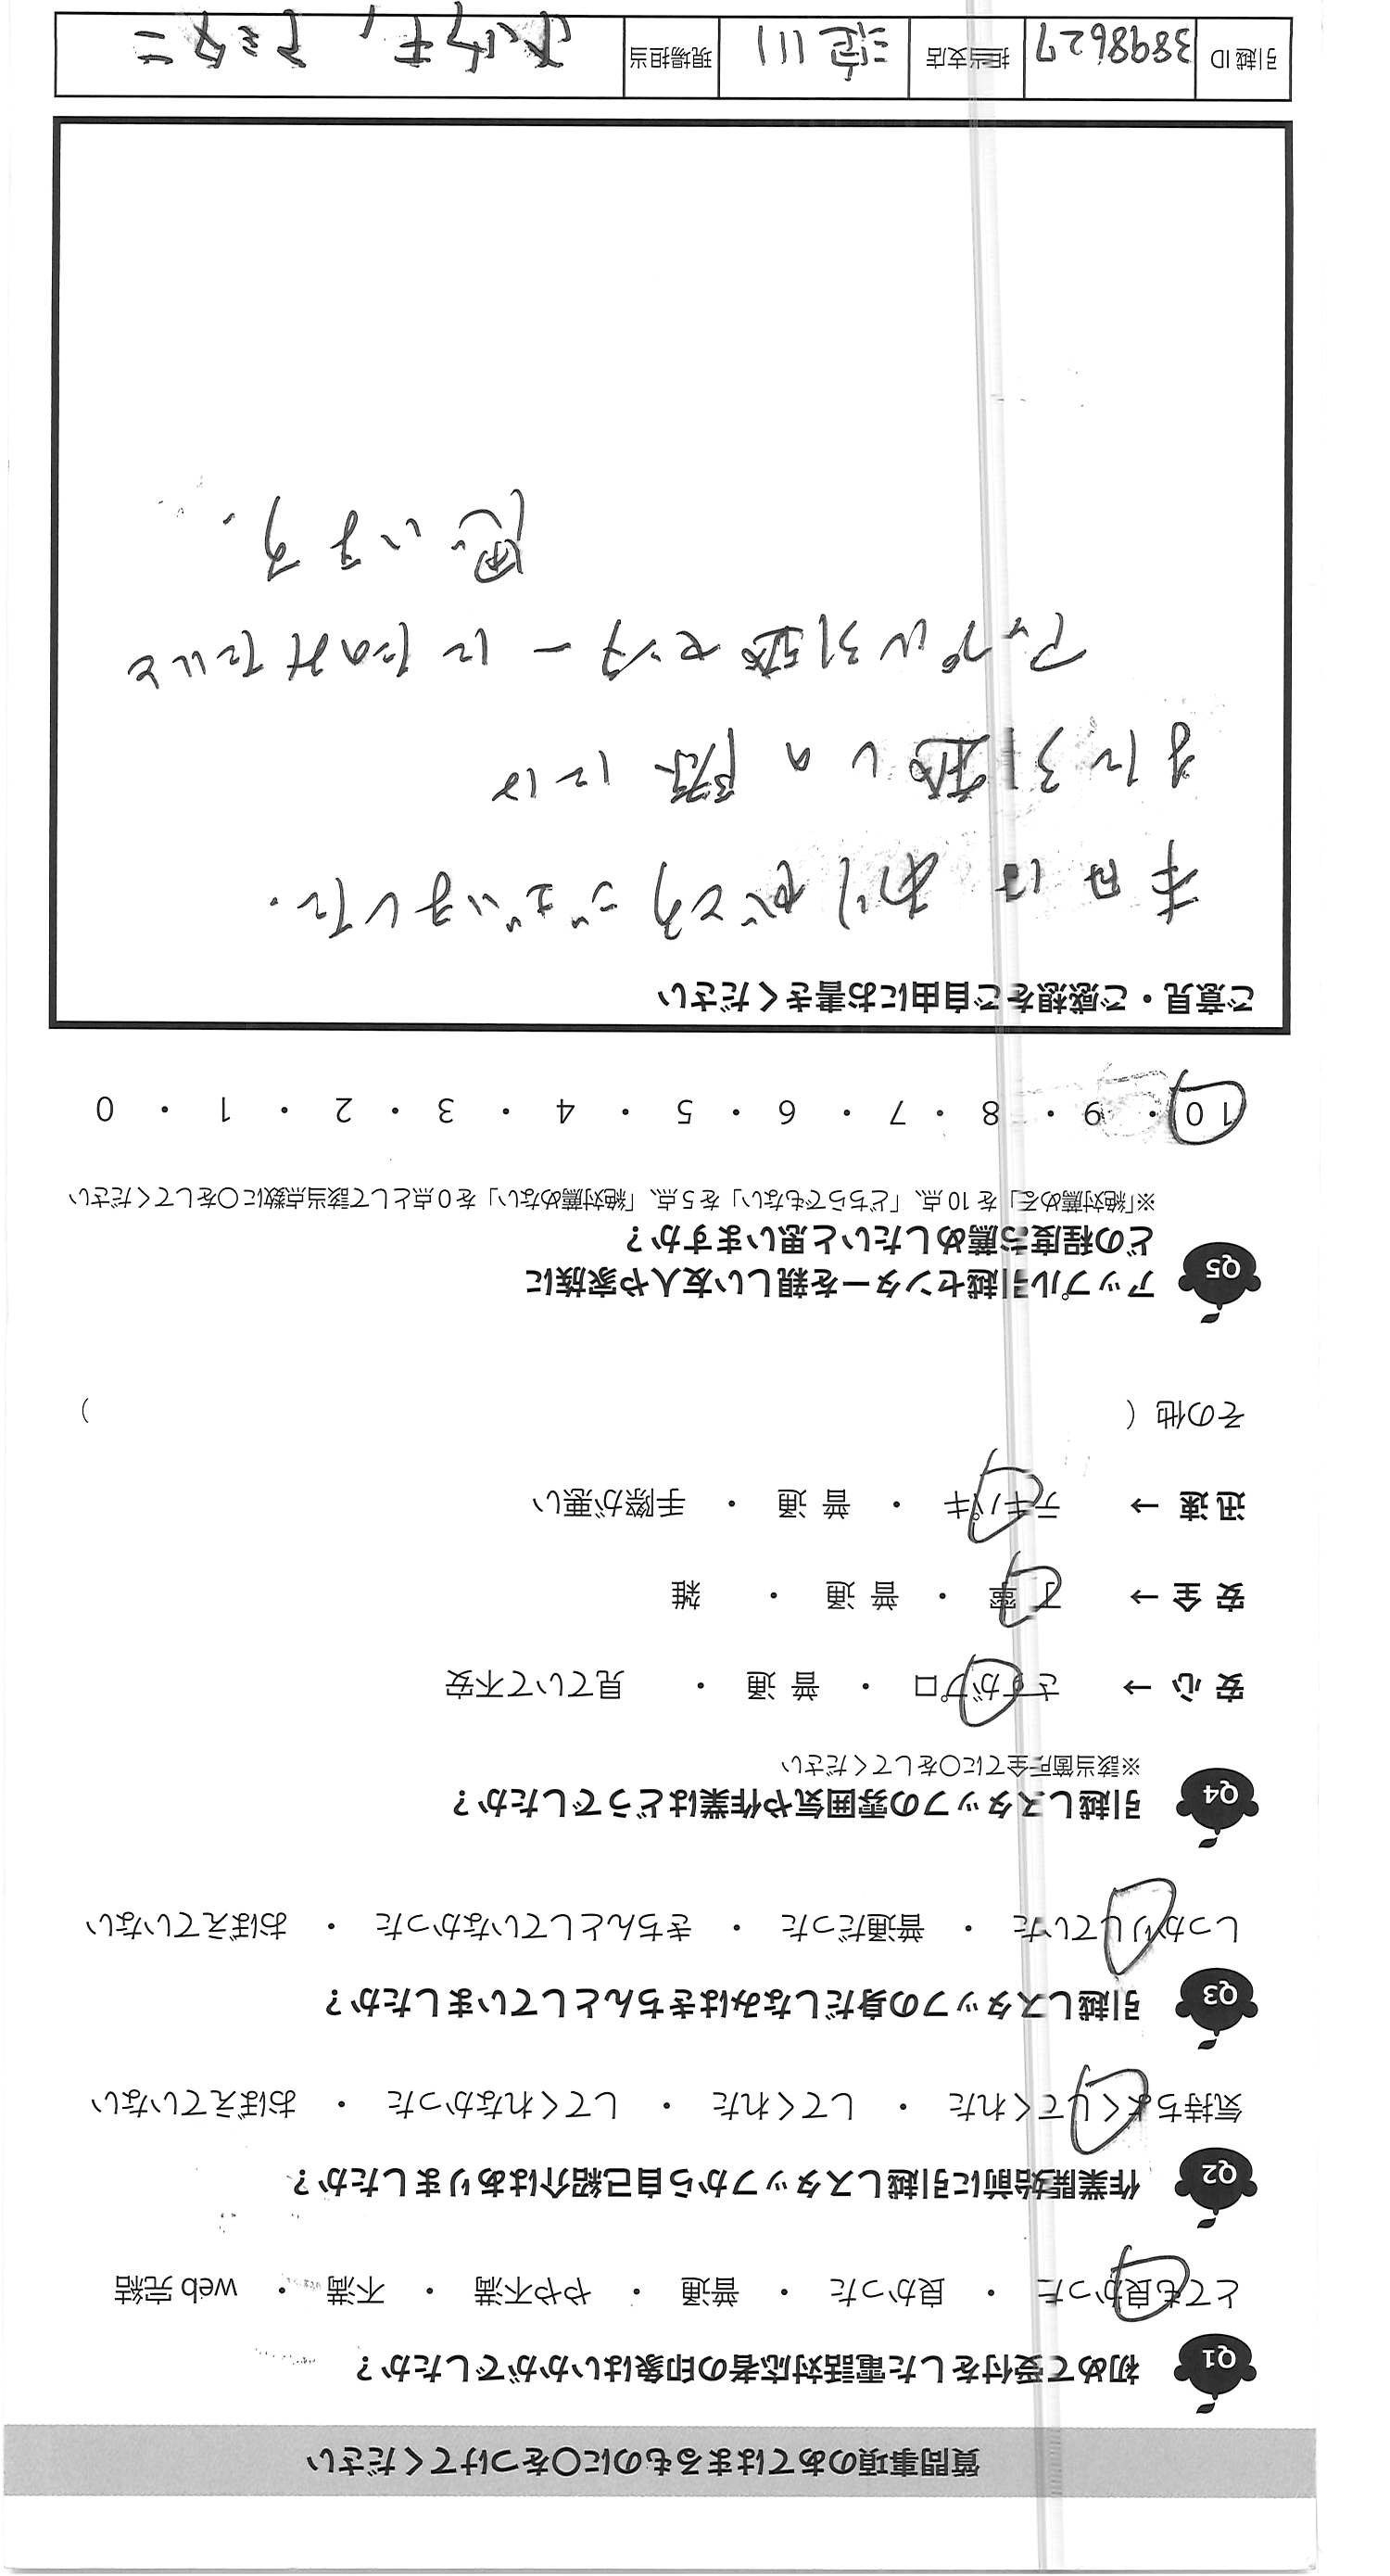 質問事項のあてはまるものに〇をつけてください
Q1 初めて受付をした電話対応者の印象はいかがでしたか？
とても良かった ・ 良かった ・ 普通 ・ やや不満 ・ 不満 ・ web 完結
Q2 作業開始前に引越しスタッフから自己紹介はありましたか？
気持ちよくしてくれた ・ してくれた ・ してくれなかった ・ おぼえていない
Q3 引越しスタッフの身だしなみはきちんとしていましたか？
しっかりしていた ・ 普通だった ・ きちんとしていなかった ・ おぼえていない
Q4 引越しスタッフの雰囲気や作業はどうでしたか？
※該当箇所全てに〇をしてください
安 心 → さすがプロ ・ 普 通 ・ 見ていて不安
安 全 → 丁 寧 ・ 普 通 ・ 雑
迅 速 → テキパキ ・ 普 通 ・ 手際が悪い
その他 （ ）
Q5 アップル引越センターを親しい友人や家族に
どの程度お薦めしたいと思いますか？
※「絶対薦める」を 10 点、「どちらでもない」を 5 点、「絶対薦めない」を 0 点として該当点数に〇をしてください
10 ・ 9 ・ 8 ・ 7 ・ 6 ・ 5 ・ 4 ・ 3 ・ 2 ・ 1 ・ 0
ご意見・ご感想をご自由にお書きください
本日は ありがとうございました.
また引越しの際には
アップル引越センターにたのみたいと
思います.
引越 ID 3898627 担当支店 淀川 現場担当